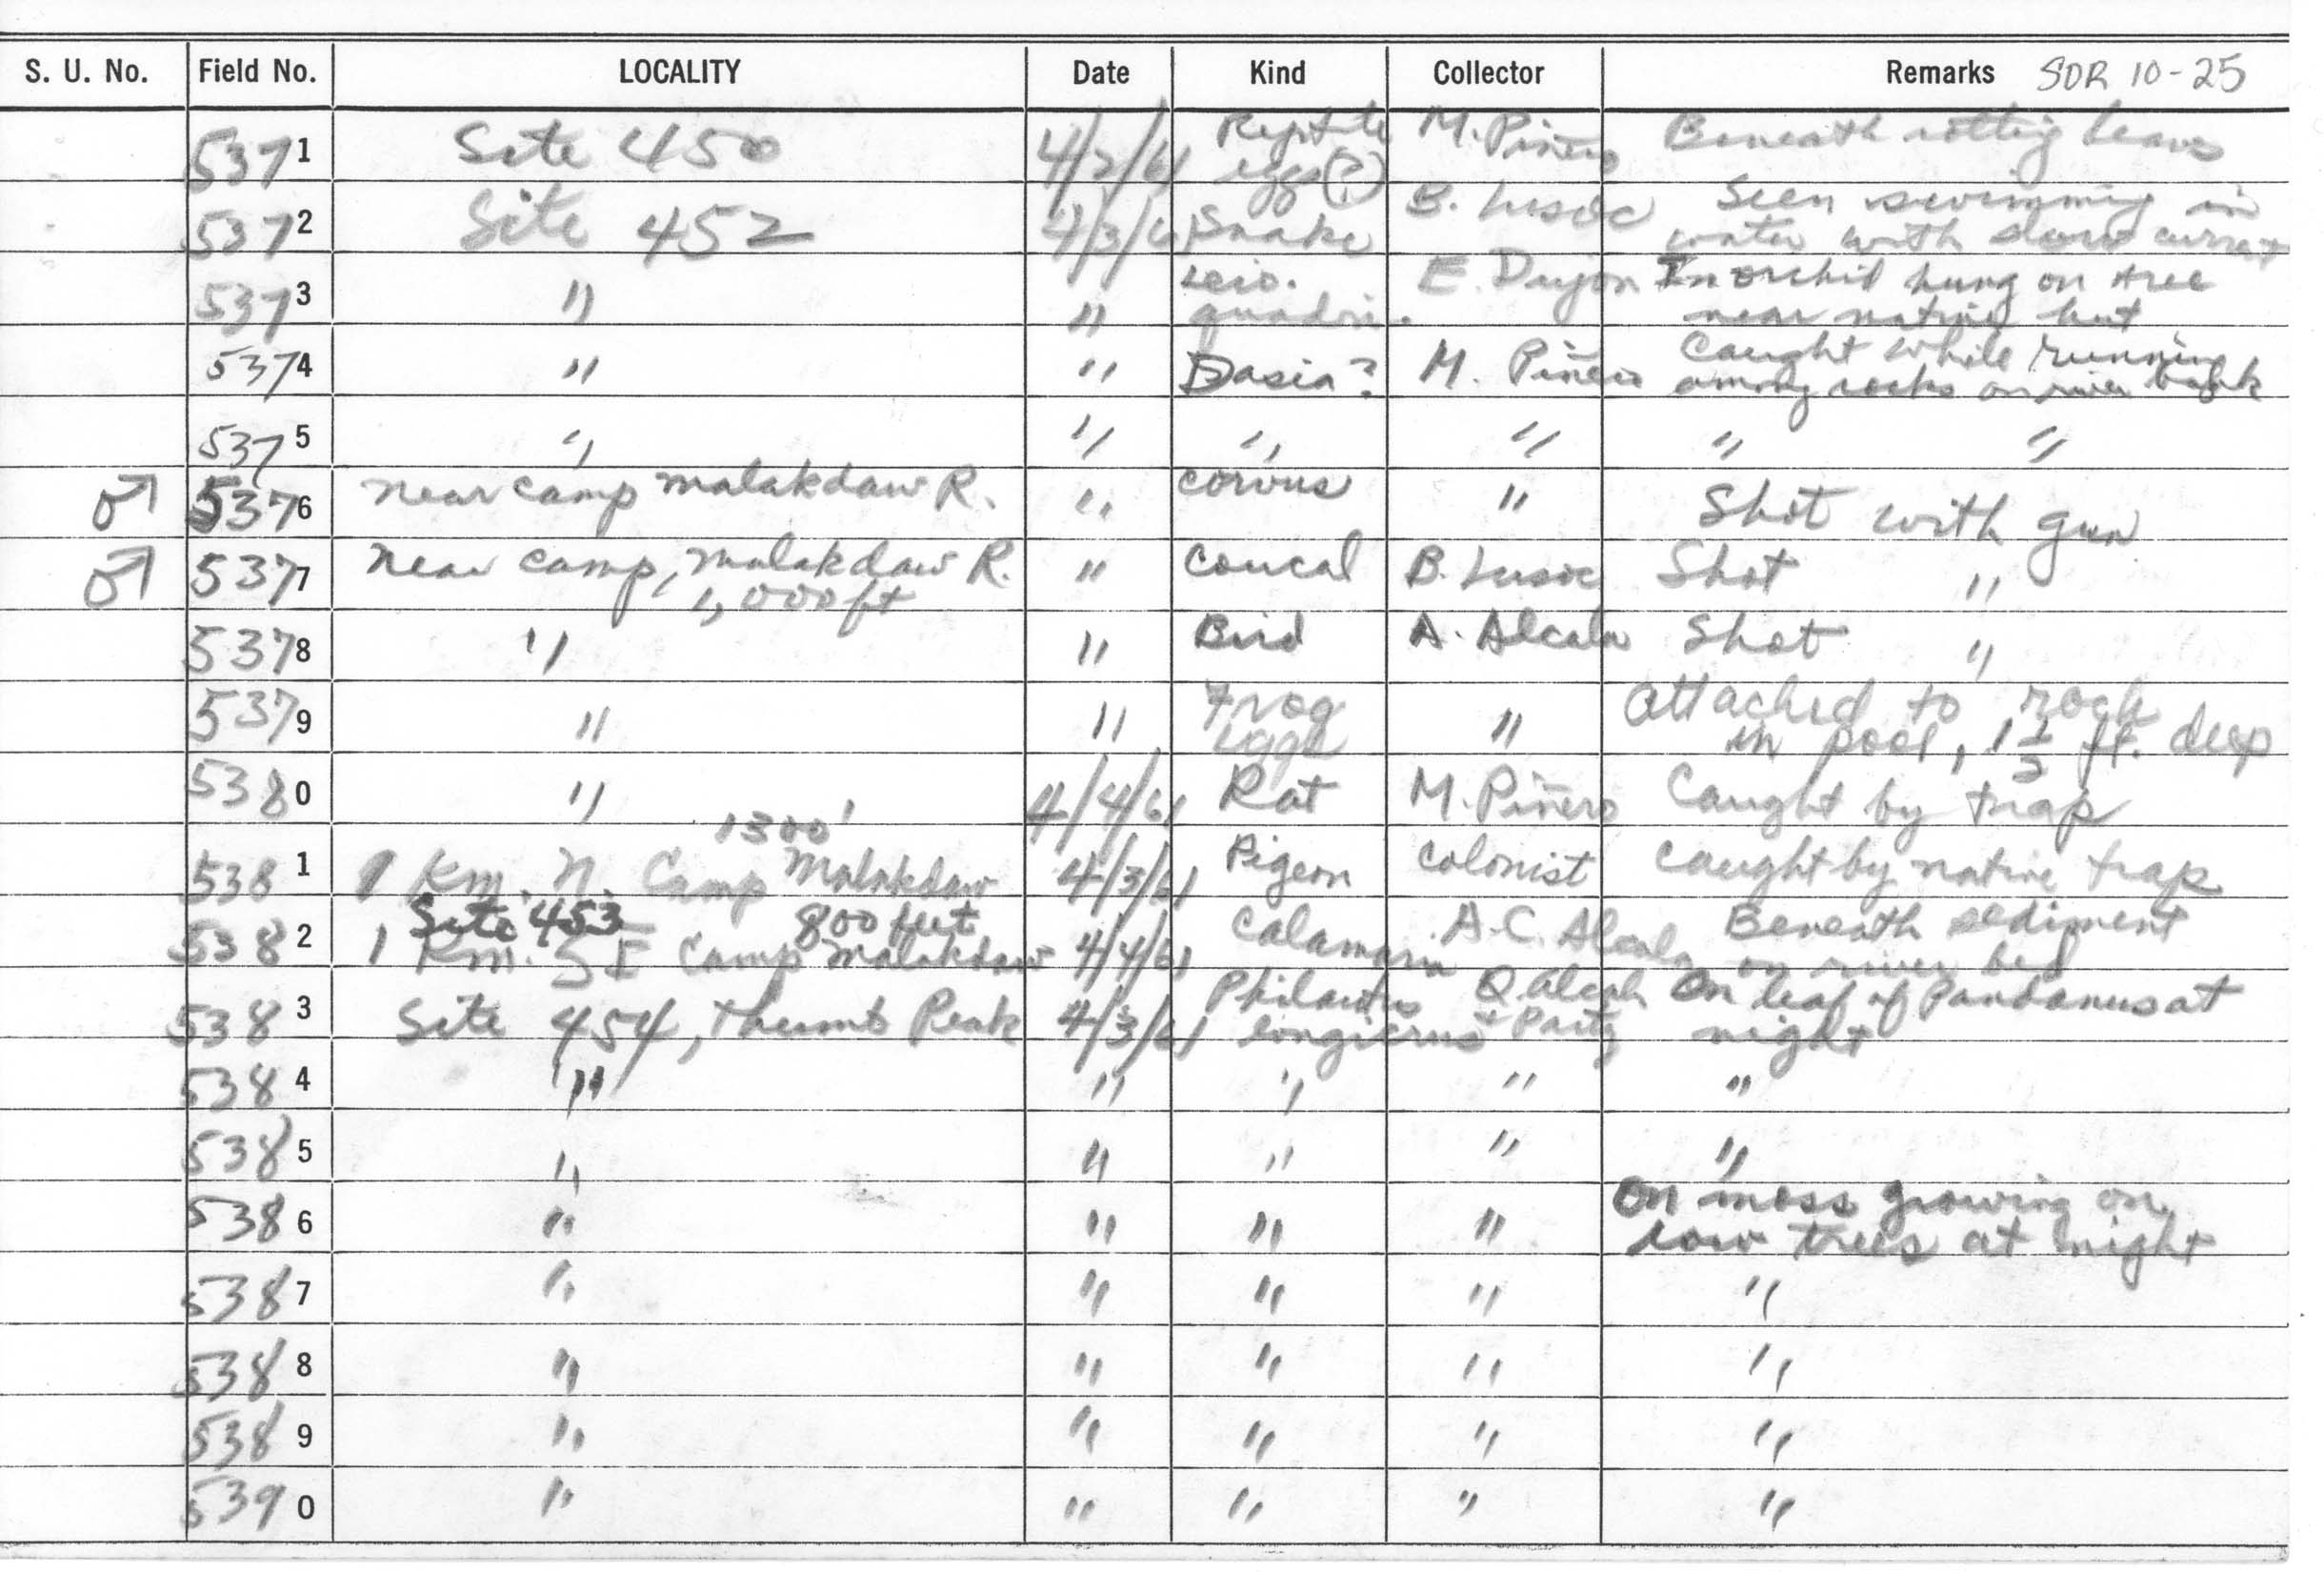 S. U. No. Field No. LOCALITY Date Kind Collector Remarks SDR 10-25
5371 Site 450 4/2/61 Reptile eggs(?) M. Piñero Beneath rotting leaves
5372 Site 452 4/3/61 Snake B. Lusoc Seen swimming in
water with slow current
5373 " " Leio. quadri. E. Dujon In orchid hung on tree
near native hut
5374 " " Dasia? M. Piñero Caught while running
among rocks on river bank
5375 " " " " " "
♂ 5376 near camp malakdaw R. " corvus " Shot with gun
♂ 5377 near camp, malakdaw R. " coucal B. Lusoc Shot "
1,000 ft
5378 " " Bird A. Alcala Shot "
5379 " " Frog eggs " attached to rock
in pool, 1 1/2 ft. deep
5380 " 4/4/61 Rat M. Piñero Caught by trap
1300'
5381 1 Km. N. Camp Malakdaw 4/3/61 Pigeon colonist caught by native trap
Site 453 800 feet
5382 1 Km. SE Camp Malakdaw 4/4/61 Calamaria A.C. Alcala Beneath sediment
on river bed
5383 Site 454, Thumb Peak 4/3/61 Philautus longicrus Q. Alcala & Party On leaf of Pandanus at
night
5384 " " " " "
5385 " " " " "
5386 " " " " On moss growing on
low trees at night
5387 " " " " "
5388 " " " " "
5389 " " " " "
5390 " " " " "